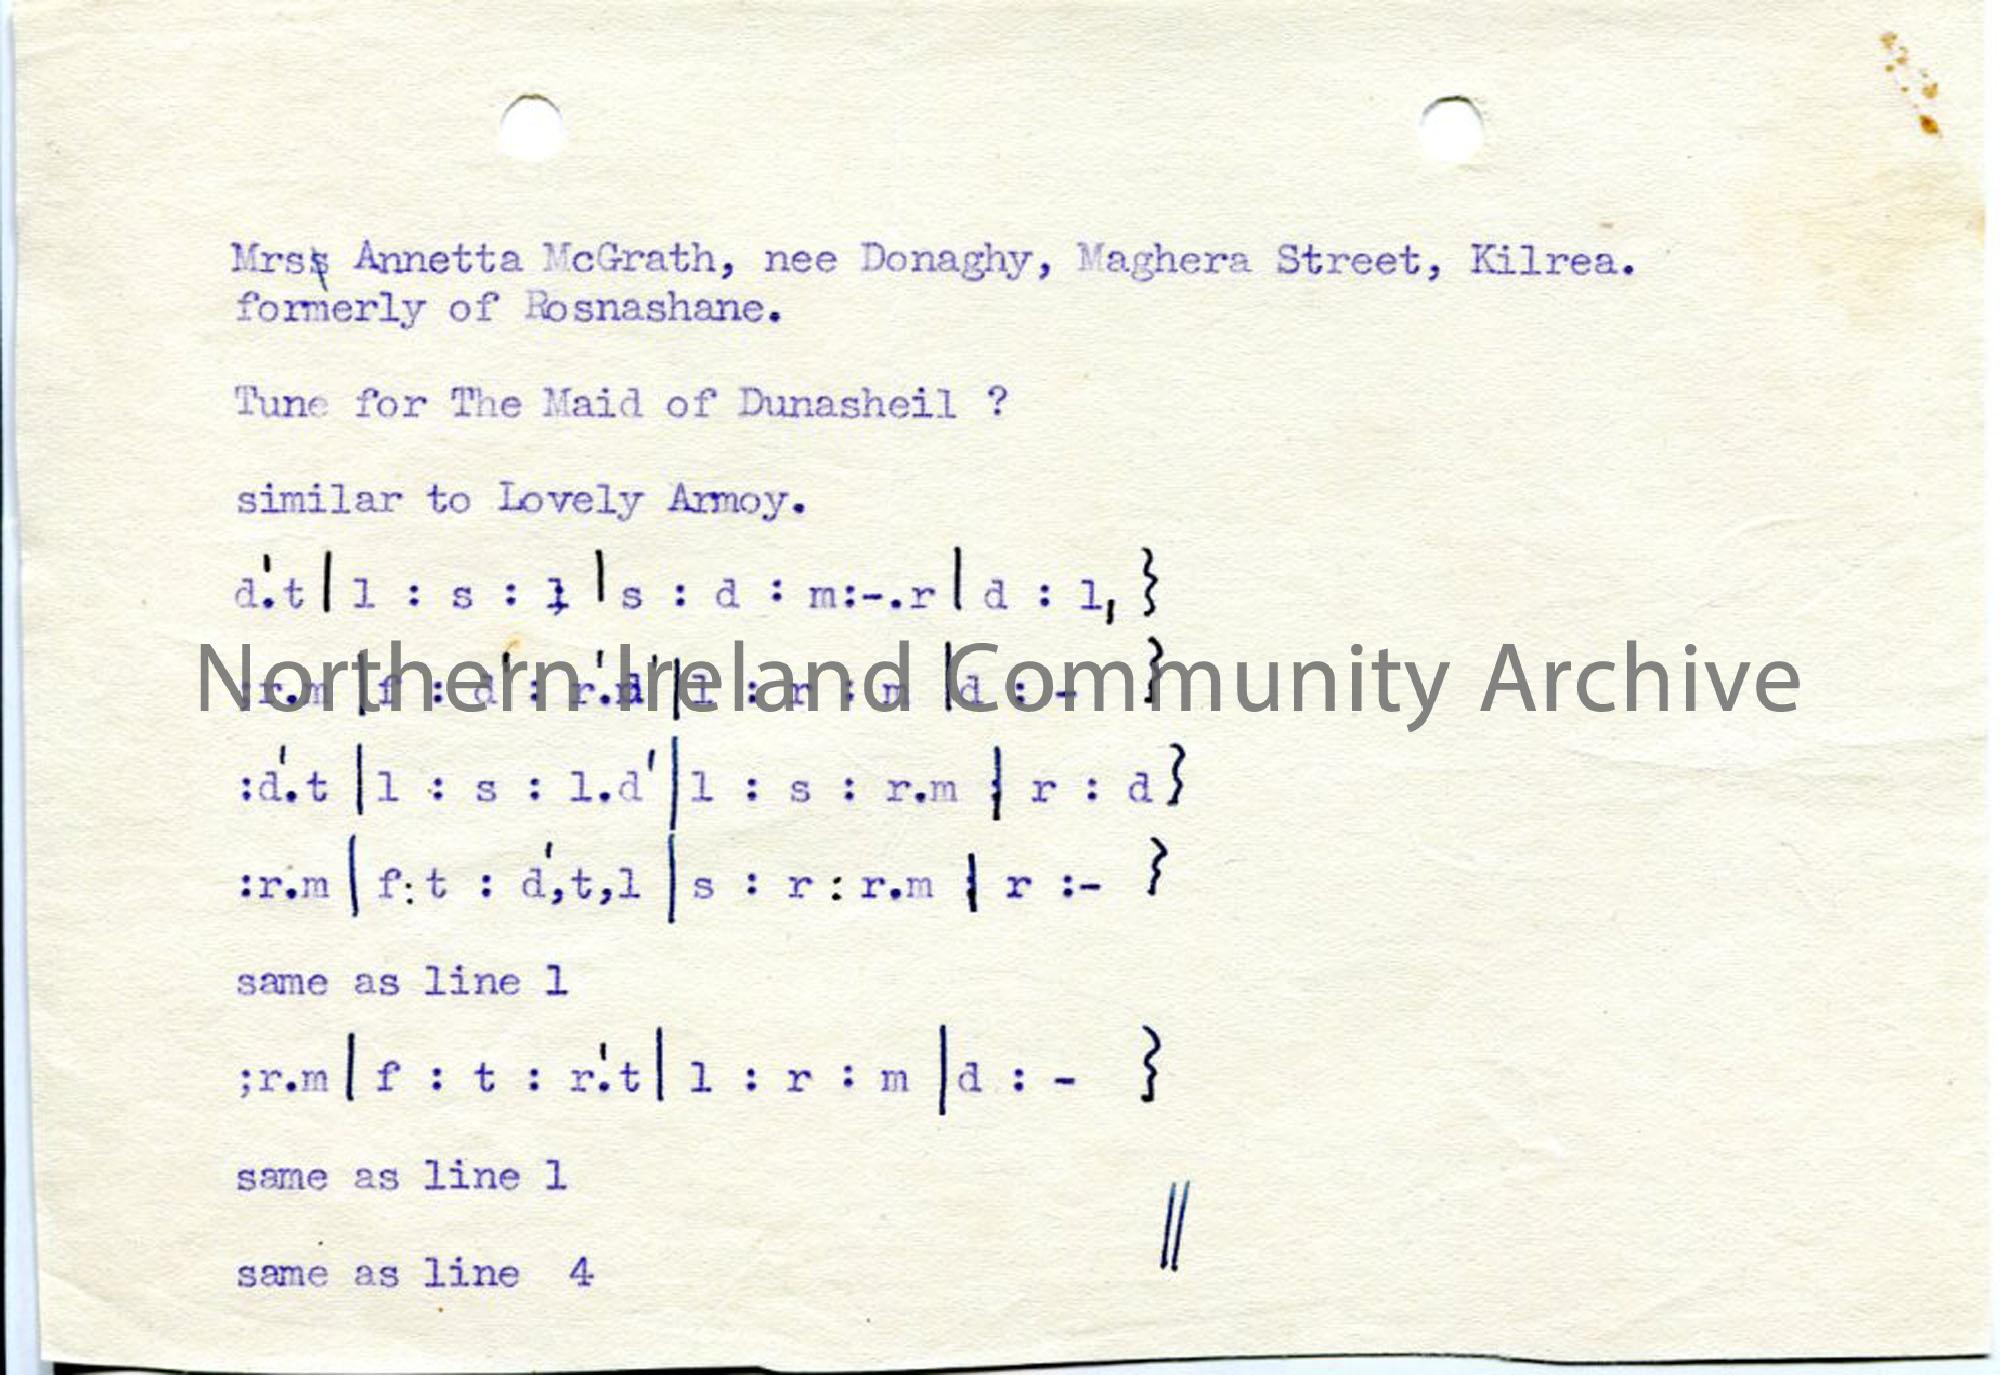 Mrss Annetta McGrath, nee Donaghy, Maghera Street, Kilrea.
formerly of Rosnashane.
Tune for The Maid of Dunasheil ?
similar to Lovely Armoy.
d'.t | l : s : l | s : d : m:-.r | d : l, }
;r.m | f : d' : r'.d' | l : r : m | d : - }
Northern Ireland Community Archive
:d'.t | l : s : l.d' | l : s : r.m | r : d }
:r.m | f:t : d',t,l | s : r : r.m | r :- }
same as line 1
;r.m | f : t : r'.t | l : r : m | d : - }
same as line 1
same as line 4 ||